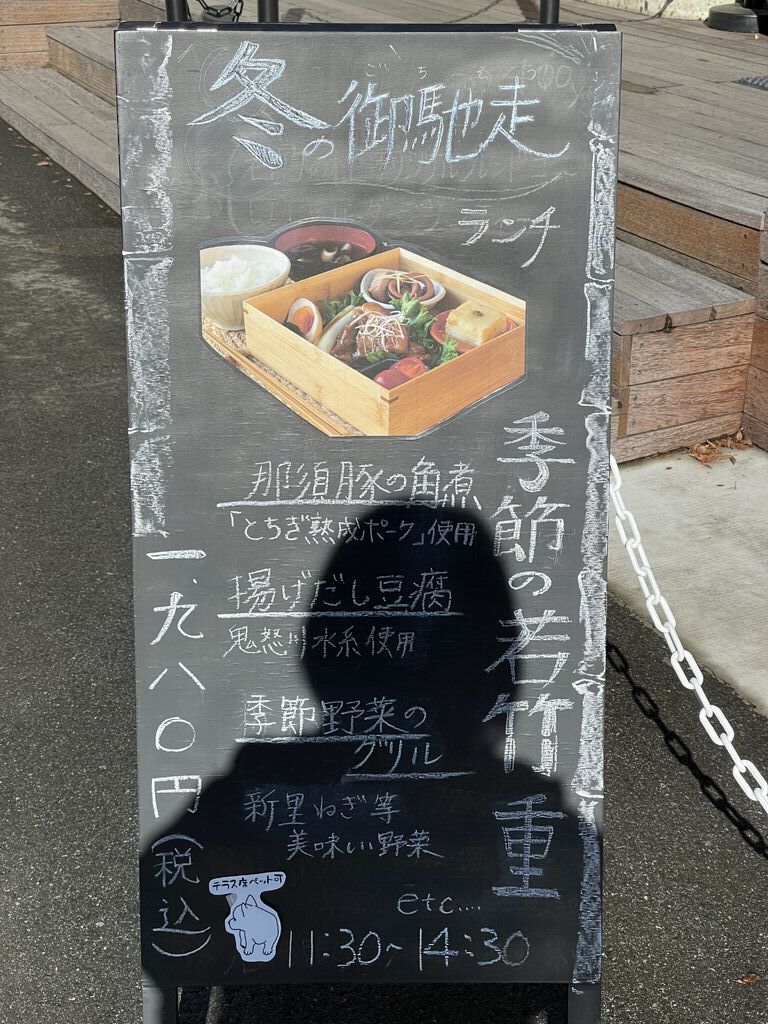 ごちそう
冬の御馳走
ランチ
季節の若竹重
那須豚の角煮
「とちぎ熟成ポーク」使用
揚げだし豆腐
鬼怒川水系使用
季節野菜の
グリル
新里ねぎ等
美味しい野菜
etc....
一、九八〇円(税込)
テラス席ペット可
11:30~14:30